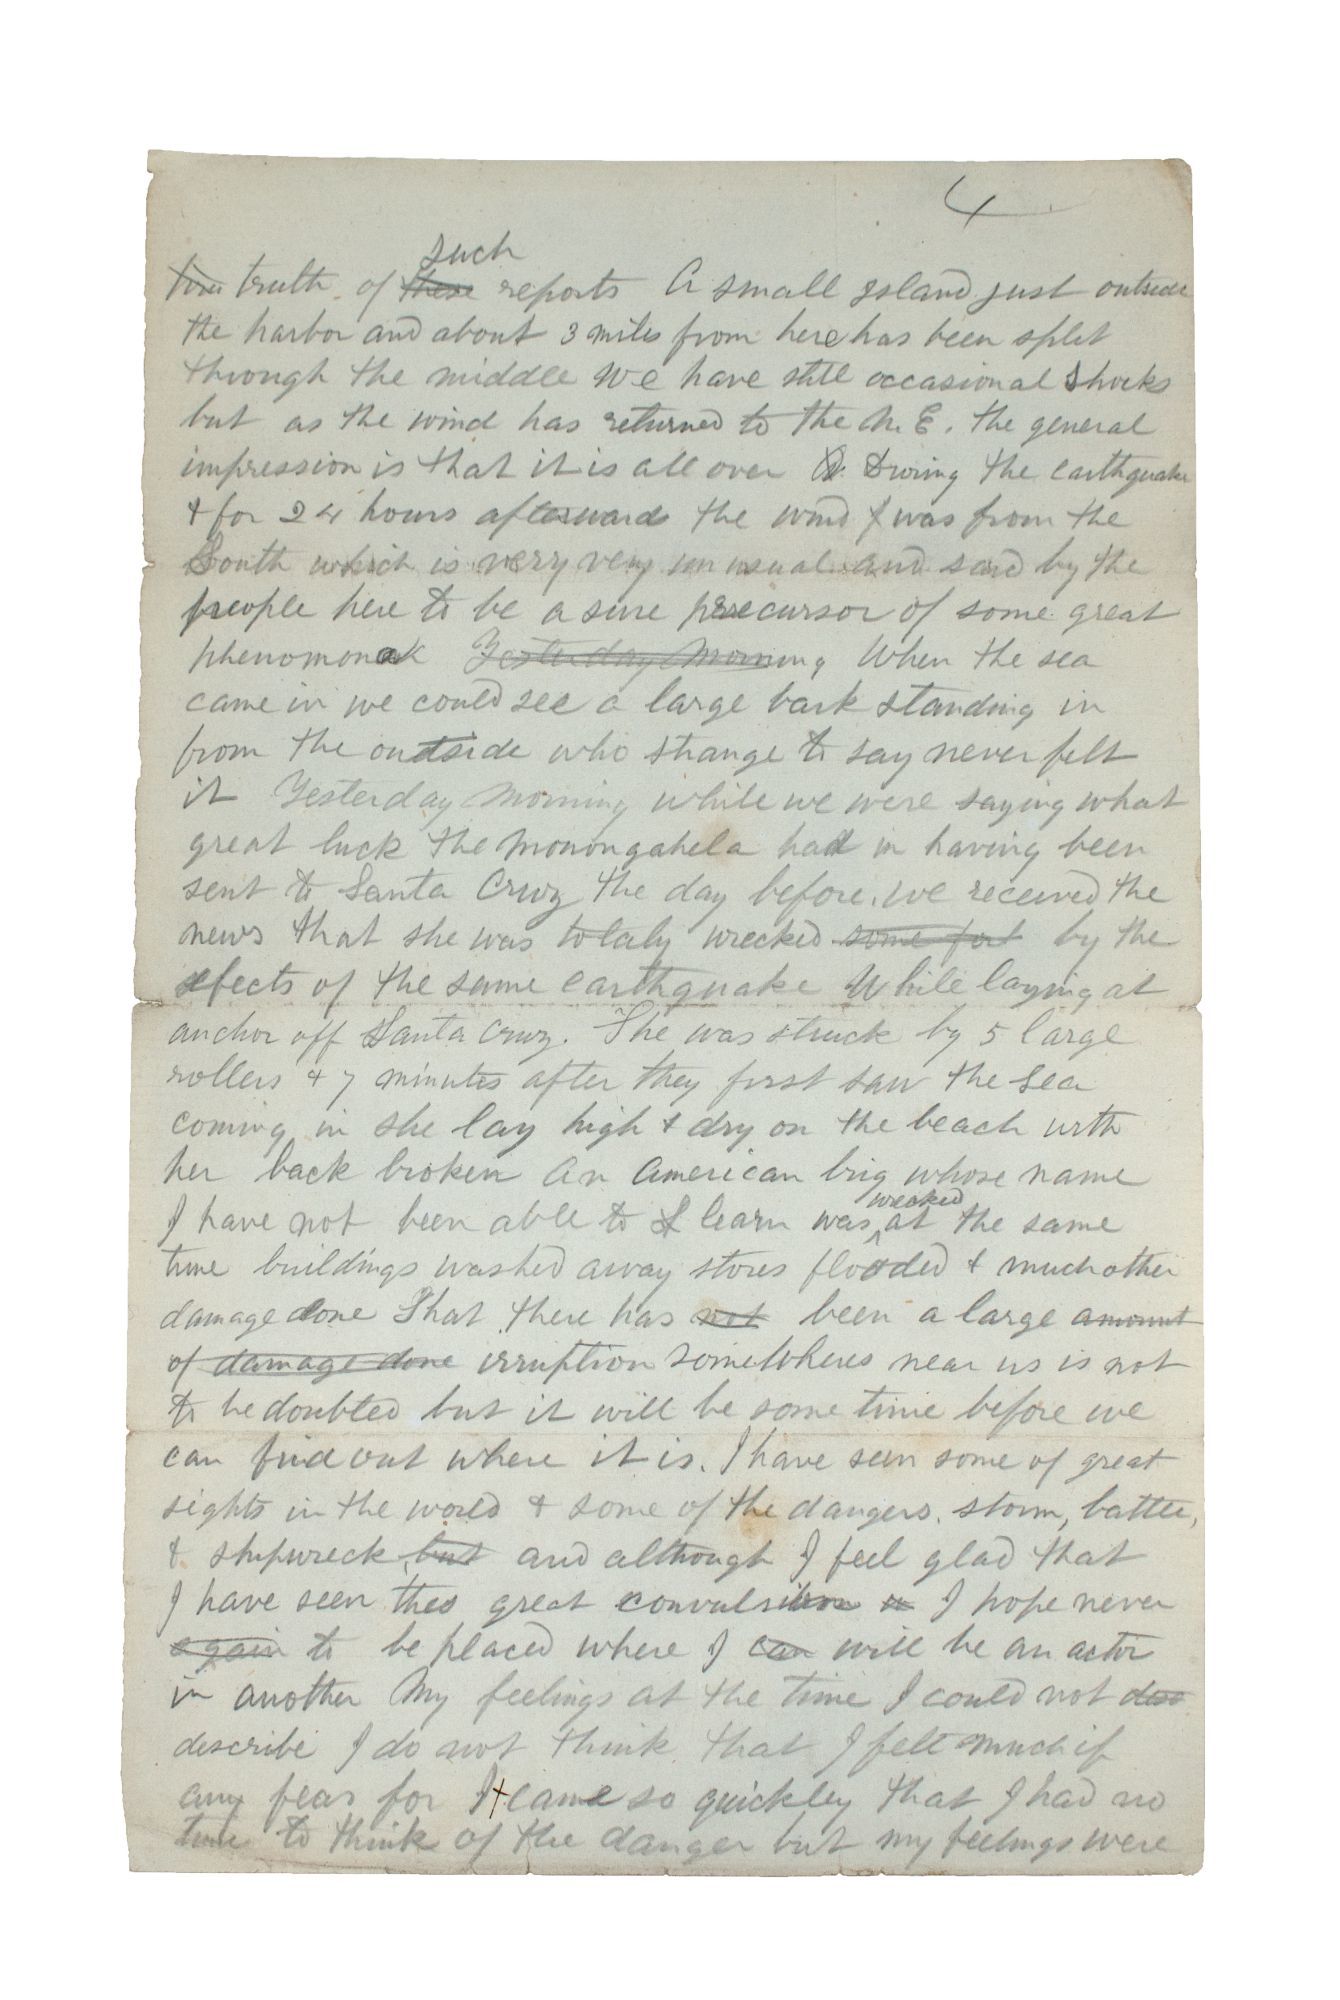 4
such
time truth of these reports A small Island just outside
the harbor and about 3 miles from here has been split
through the middle We have still occasional Shocks
but as the wind has returned to the N. E. the general
impression is that it is all over During the earthquake
& for 24 hours afterwards the wind was from the
South which is very very unusual and said by the
people here to be a sure precursor of some great
phenomonok Yesterday morning When the sea
came in we could see a large bark standing in
from the outside who strange to say never felt
it Yesterday Morning while we were saying what
great luck the Monongahela had in having been
sent to Santa Cruz the day before, we received the
news that she was totaly wrecked some fort by the
efects of the same earthquake While laying at
anchor off Santa Cruz. She was struck by 5 large
rollers & 7 minutes after they first saw the sea
coming in she lay high & dry on the beach with
her back broken An American brig whose name
wrecked
I have not been able to learn was at the same
time buildings washed away stores flooded & much other
damage done That there has not been a large amount
of damage done irruption somewheres near us is not
to be doubted but it will be some time before we
can find out where it is. I have seen some of great
sights in the world & some of the dangers. storm, battle,
& shipwreck but and although I feel glad that
I have seen this great convulsion I hope never
again to be placed where I can will be an actor
in another My feelings at the time I could not des
describe I do not think that I felt much if
any fear for It came so quickley that I had no
time to think of the danger but my feelings were